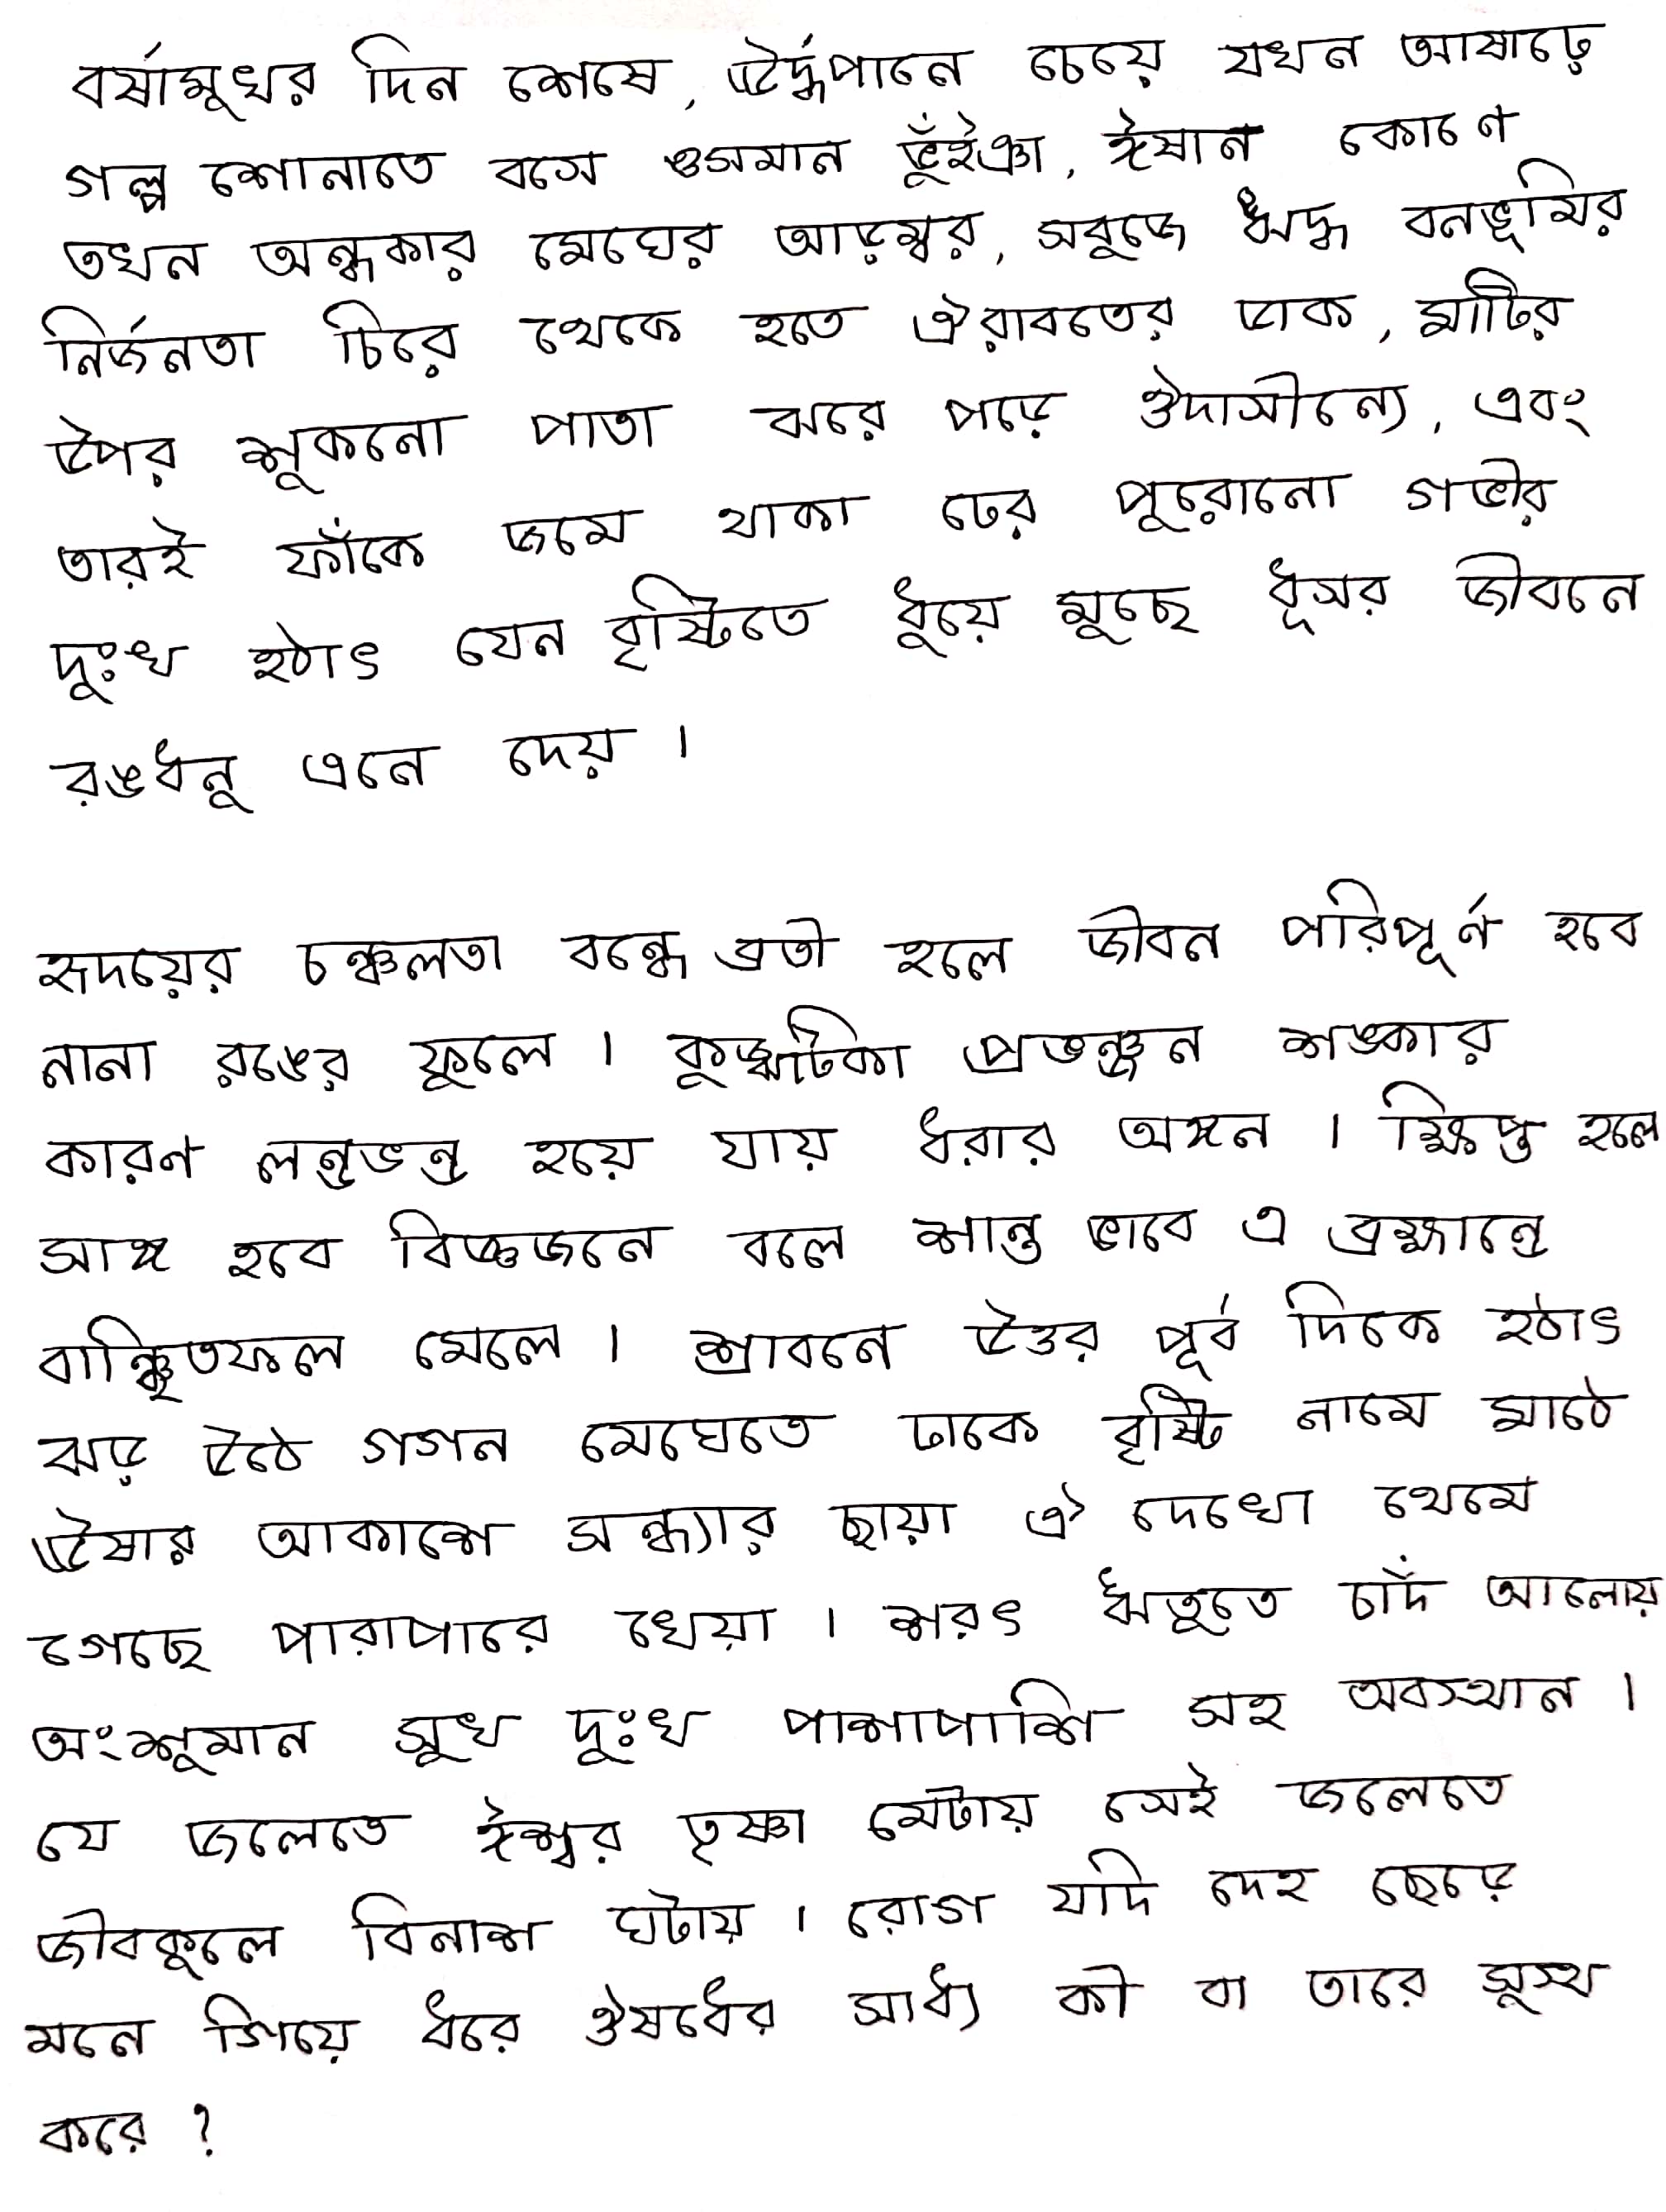 বর্ষামুখর দিন শেষে, উর্দ্ধপানে চেয়ে যখন আষাঢ়ে
গল্প শোনাতে বসে ওসমান ভুঁইঞা, ঈষান কোণে
তখন অন্ধকার মেঘের আড়ম্বর, সবুজে ঋদ্ধ বনভূমির
নির্জনতা চিরে থেকে হতে ঐরাবতের ডাক, মাটির
উপর শুকনো পাতা ঝরে পড়ে ঔদাসীন্যে, এবং
তারই ফাঁকে জমে থাকা ঢের পুরোনো গভীর
দুঃখ হঠাৎ যেন বৃষ্টিতে ধুয়ে মুছে ধূসর জীবনে
রঙধনু এনে দেয় ।
হৃদয়ের চঞ্চলতা বন্ধে ব্রতী হলে জীবন পরিপূর্ণ হবে
নানা রঙের ফুলে । কুজ্ঝটিকা প্রভঞ্জন শঙ্কার
কারণ লন্ডভন্ড হয়ে যায় ধরার অঙ্গন । ক্ষিপ্ত হলে
সাঙ্গ হবে বিজ্ঞজনে বলে শান্ত ভাবে এ ব্রহ্মান্ডে
বাঞ্ছিতফল মেলে । শ্রাবনে উত্তর পূর্ব দিকে হঠাৎ
ঝড় উঠে গগন মেঘেতে ঢাকে বৃষ্টি নামে মাঠে
উষার আকাশে সন্ধ্যার ছায়া ঐ দেখো থেমে
গেছে পারাপারে খেয়া । শরৎ ঋতুতে চাঁদ আলোয়
অংশুমান সুখ দুঃখ পাশাপাশি সহ অবস্থান ।
যে জলেতে ঈশ্বর তৃষ্ণা মেটায় সেই জলেতে
জীবকুলে বিনাশ ঘটায় । রোগ যদি দেহ ছেড়ে
মনে গিয়ে ধরে ঔষধের সাধ্য কী বা তারে সুস্থ
করে ?